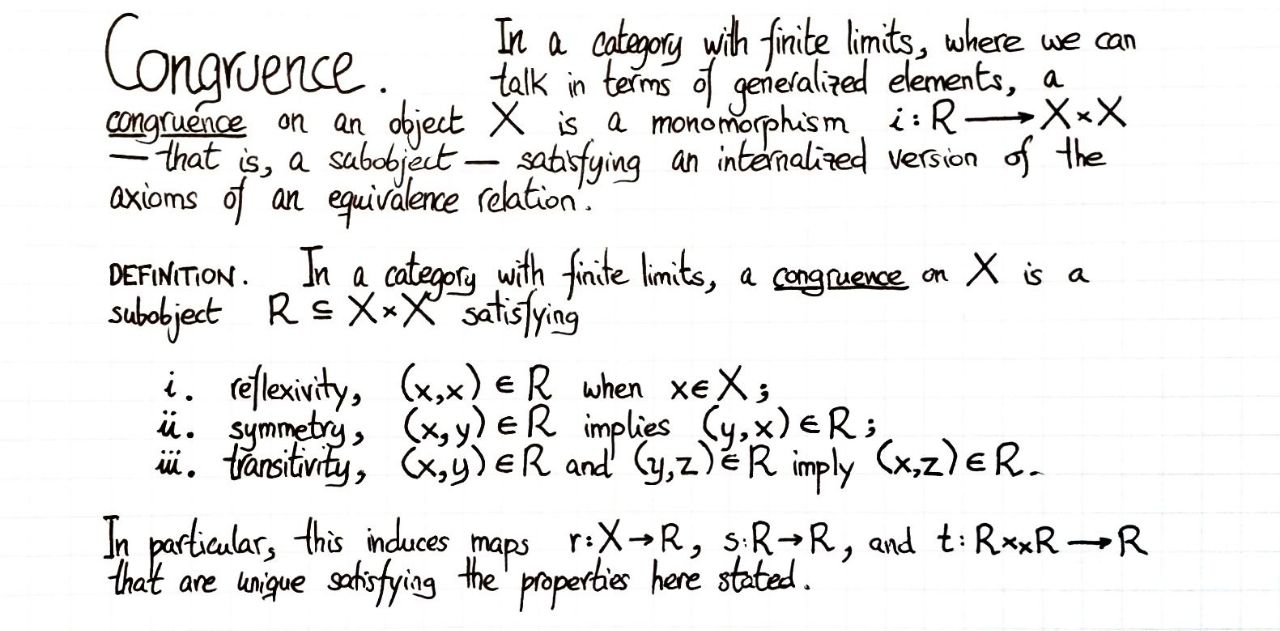 Congruence. In a category with finite limits, where we can
talk in terms of generalized elements, a
congruence on an object X is a monomorphism i : R ⟶ X × X
— that is, a subobject — satisfying an internalized version of the
axioms of an equivalence relation.
DEFINITION. In a category with finite limits, a congruence on X is a
subobject R ⊆ X × X satisfying
i. reflexivity, (x,x) ∈ R when x ∈ X ;
ii. symmetry, (x,y) ∈ R implies (y,x) ∈ R ;
iii. transitivity, (x,y) ∈ R and (y,z) ∈ R imply (x,z) ∈ R.
In particular, this induces maps r : X → R, s : R → R, and t : R ×ₓ R ⟶ R
that are unique satisfying the properties here stated.